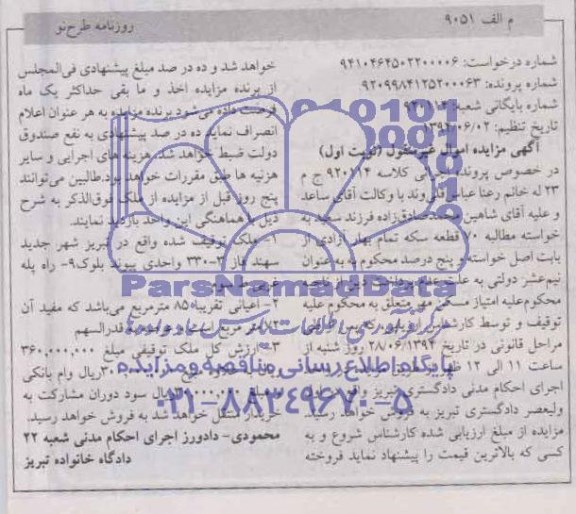 م الف ۹۰۵۱
روزنامه طرح‌نو
شماره درخواست: ۹۴۱۰۴۶۴۵۰۲۲۰۰۰۰۶
شماره پرونده: ۹۲۰۹۹۸۴۱۲۵۲۰۰۰۶۳
شماره بایگانی شعبه:
تاریخ تنظیم: ۱۳۹۴/۰۶/۰۲
آگهی مزایده اموال غیرمنقول (نوبت اول)
در خصوص پرونده اجرائی کلاسه ۹۲۰۱۱۴ ج م
۲۳ له خانم رعنا عباس قلی‌وند با وکالت آقای ساعد
و علیه آقای شاهین محمدصادق‌زاده فرزند سعید به
خواسته مطالبه ۷۰ قطعه سکه تمام بهار آزادی از
بابت اصل خواسته و پنج درصد محکوم به به عنوان
نیم‌عشر دولتی به علت عدم پرداخت دین از ناحیه
محکوم‌علیه امتیاز مسکن مهر متعلق به محکوم علیه
توقیف و توسط کارشناس ارزیابی گردیده و با طی
مراحل قانونی در تاریخ ۲۸/۰۶/۱۳۹۴ روز شنبه از
ساعت ۱۱ الی ۱۲ ظهر
اجرای احکام مدنی دادگستری تبریز واقع در
ولیعصر دادگستری تبریز به فروش خواهد رسید.
مزایده از مبلغ ارزیابی شده کارشناس شروع و به
کسی که بالاترین قیمت را پیشنهاد نماید فروخته
خواهد شد و ده در صد مبلغ پیشنهادی فی‌المجلس
از برنده مزایده اخذ و ما بقی حداکثر یک ماه
فرصت داده می‌شود برنده مزایده به هر عنوان اعلام
انصراف نماید ده در صد پیشنهادی به نفع صندوق
دولت ضبط خواهد شد. هزینه های اجرایی و سایر
هزنیه ها طبق مقررات خواهد بود.طالبین می‌توانند
پنج روز قبل از مزایده از ملک فوق‌الذکر به شرح
ذیل با هماهنگی این واحد بازدید نمایند.
۱- ملک توقیف شده واقع در تبریز شهر جدید
سهند فاز ۳- ۳۳۰ واحدی پیوند بلوک۹- راه پله
۲- اعیانی تقریبا۸۵ مترمربع می‌باشد که مفید آن
متر مربع است و عرصه قدرالسهم
۳- ارزش کل ملک توقیفی مبلغ ۳۶۰,۰۰۰,۰۰۰
ریال وام بانکی
ریال سود دوران مشارکت به
خریدار منتقل خواهد شد به فروش خواهد رسید.
محمودی- دادورز اجرای احکام مدنی شعبه ۲۲
دادگاه خانواده تبریز
ParsNamadData
پایگاه اطلاع رسانی مناقصه و مزایده
۰۲۱-۸۸۳۴۹۶۷۰-۵